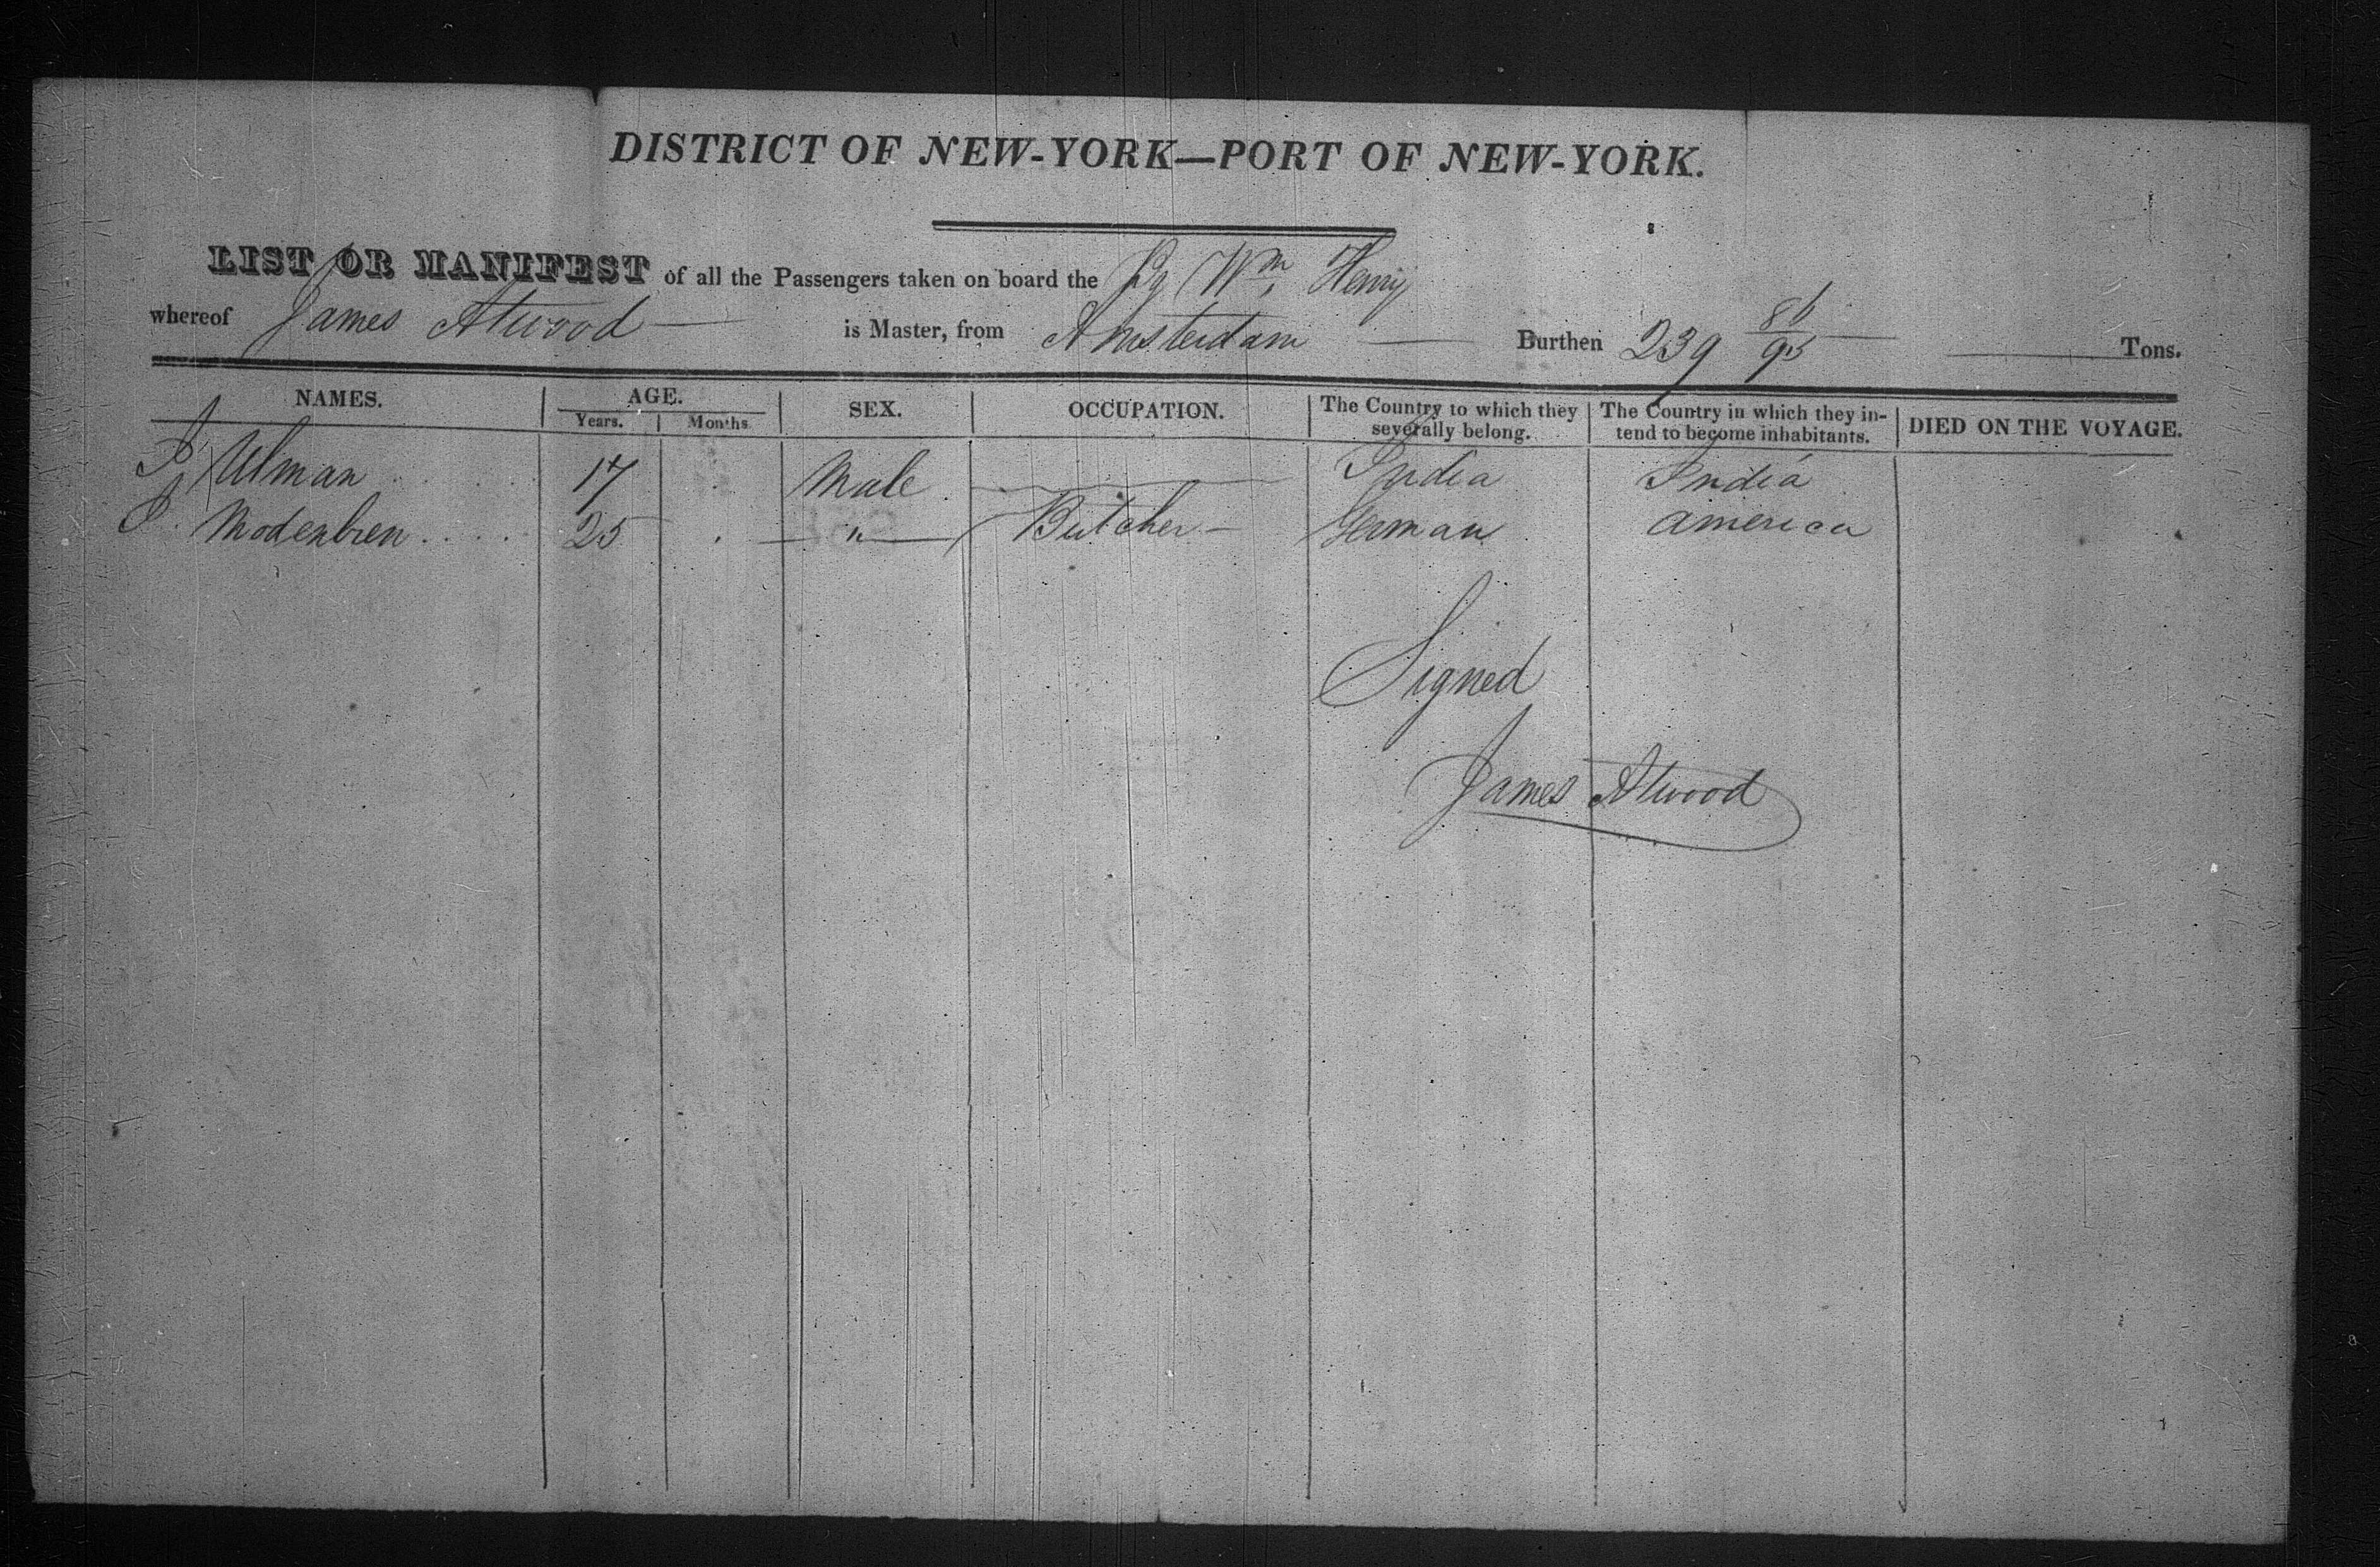 DISTRICT OF NEW-YORK—PORT OF NEW-YORK.
LIST OR MANIFEST of all the Passengers taken on board the Wm Henry
whereof James Atwood is Master, from Amsterdam Burthen 239 86/95 Tons.
NAMES. AGE. SEX. OCCUPATION. The Country to which they severally belong. The Country in which they intend to become inhabitants. DIED ON THE VOYAGE.
Years. Months
Ulman 17 Male India India
Modenbren 25 " Butcher German America
Signed
James Atwood